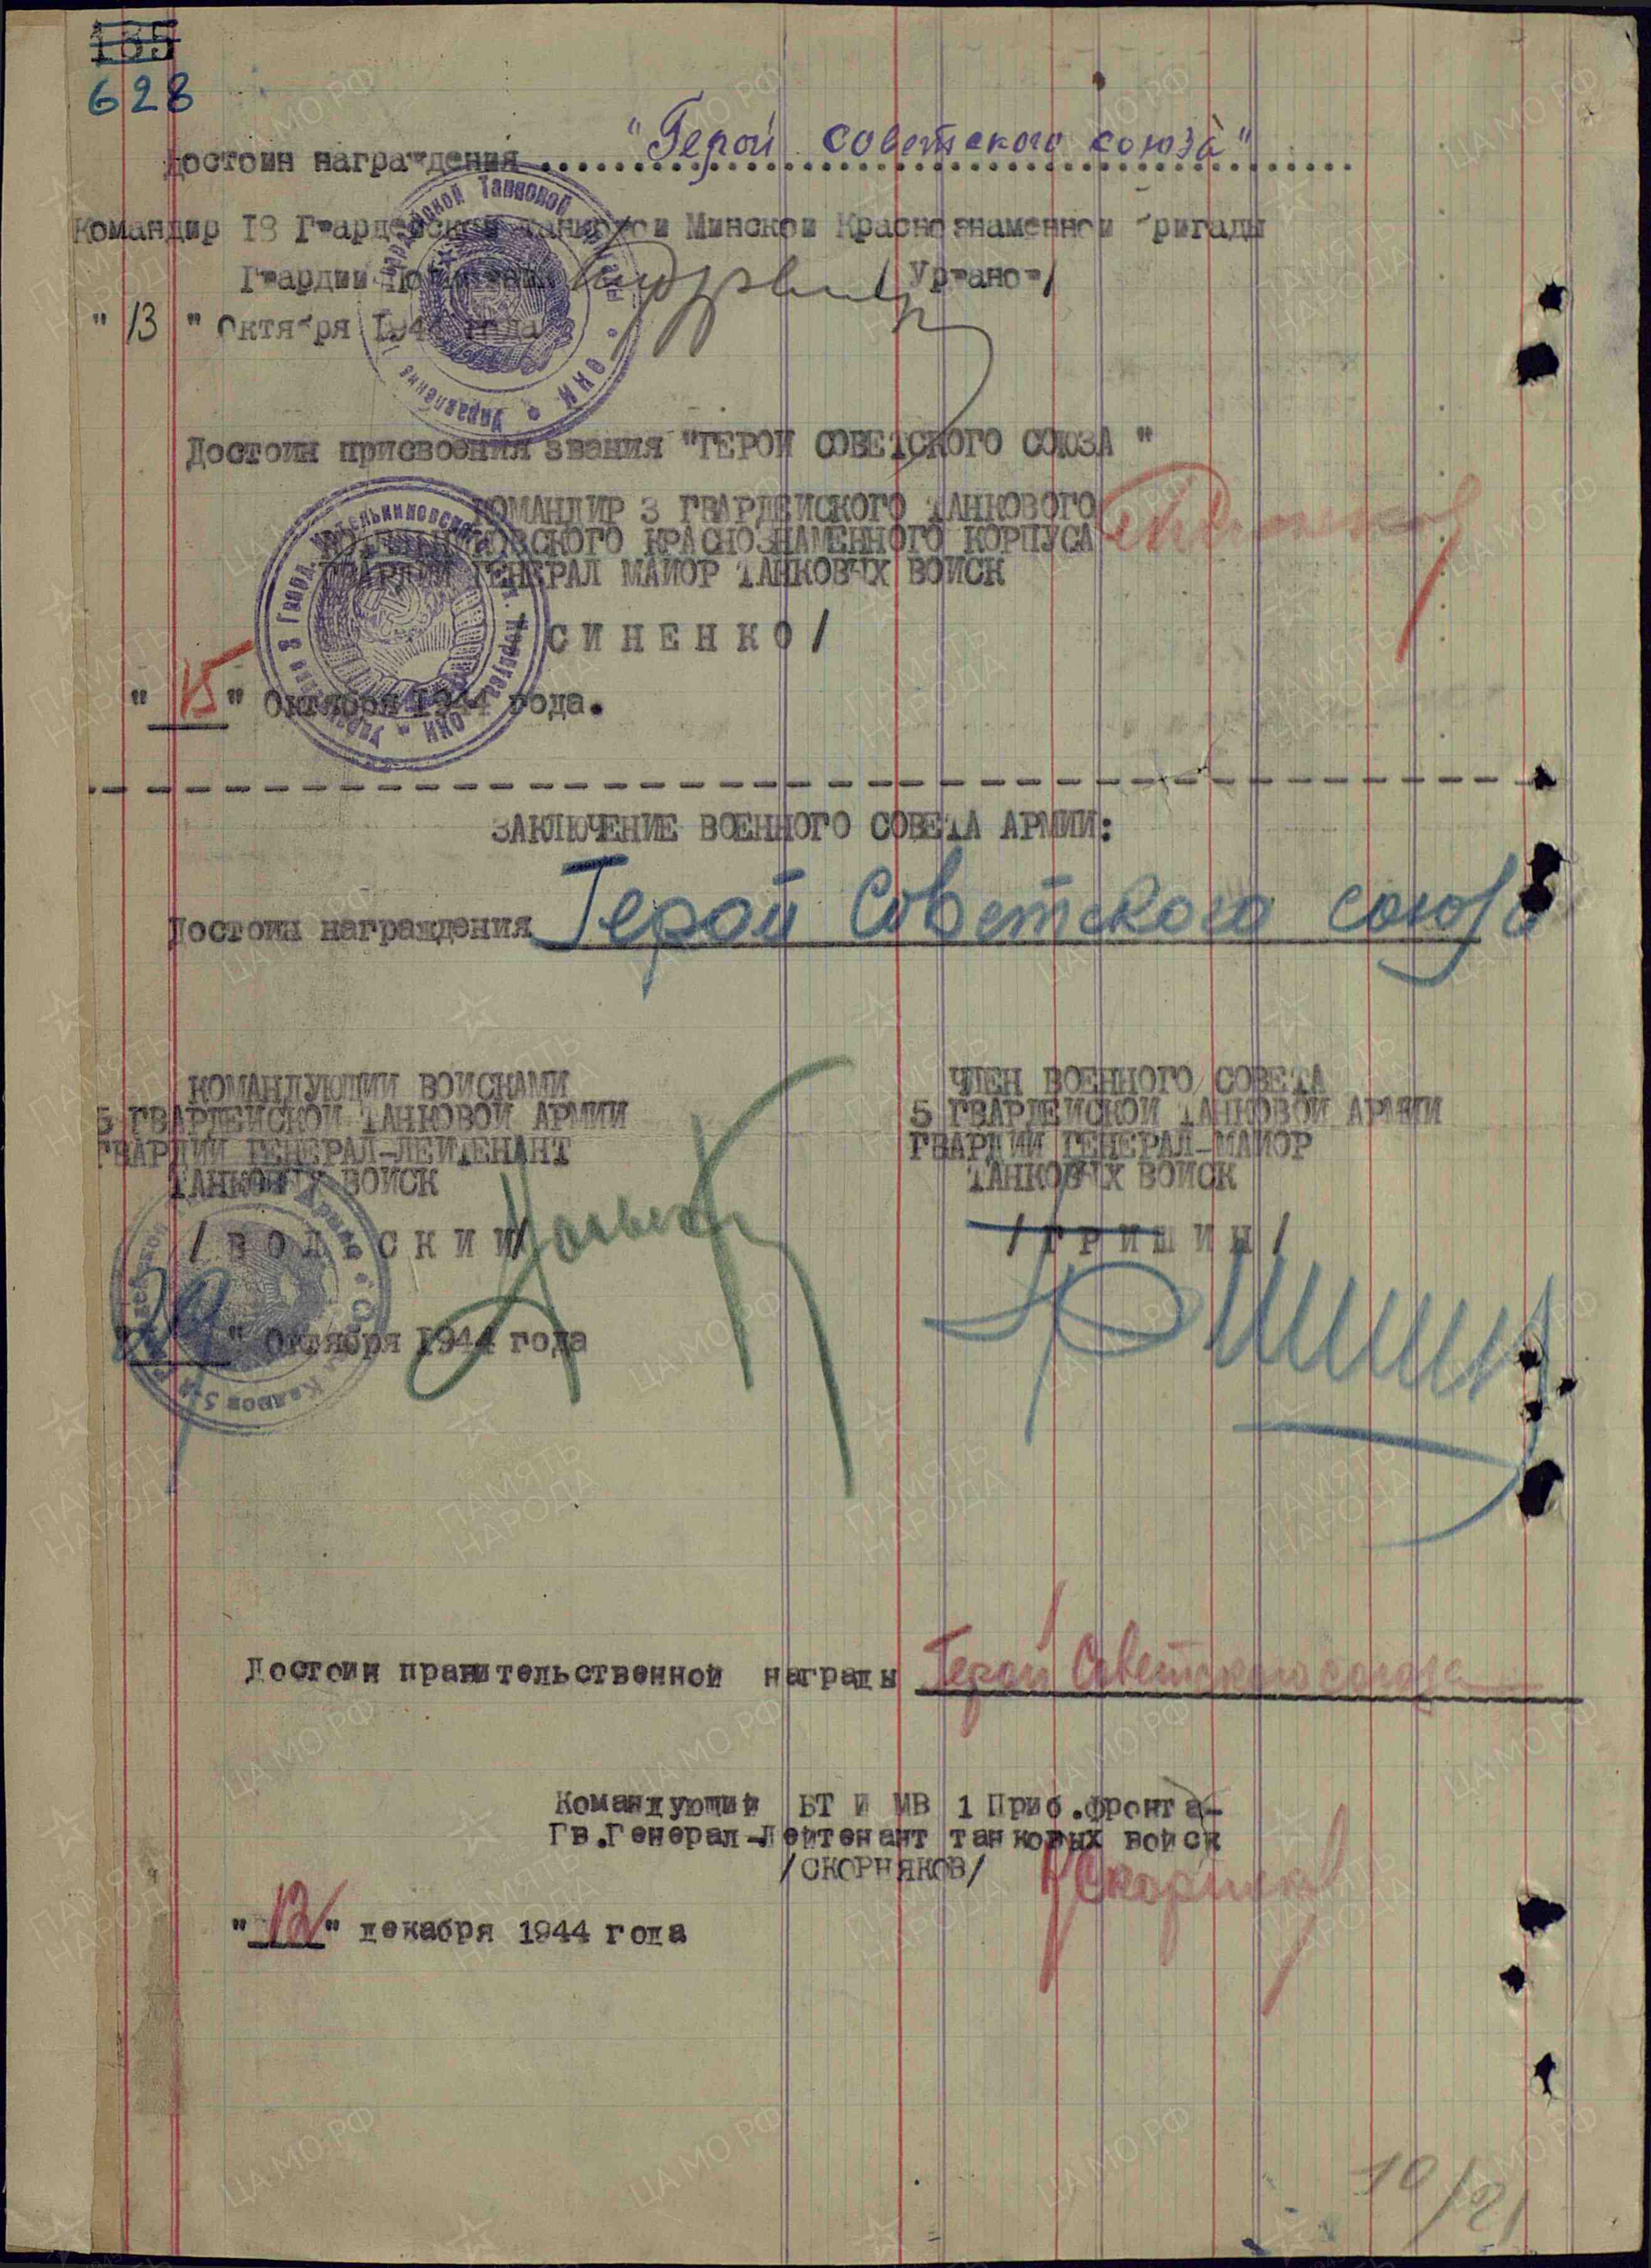 135
628
Достоин награждения "Герой советского союза"
Командир 18 Гвардейской танковой Минской Краснознаменной бригады
Гвардии /Урванов/
"13" Октября 1944 года
Достоин присвоения звания "ГЕРОЙ СОВЕТСКОГО СОЮЗА"
КОМАНДИР 3 ГВАРДЕЙСКОГО ТАНКОВОГО
КОТЕЛЬНИКОВСКОГО КРАСНОЗНАМЕННОГО КОРПУСА
ГВАРДИИ ГЕНЕРАЛ МАЙОР ТАНКОВЫХ ВОЙСК
/СИНЕНКО/
"15" Октября 1944 года.
ЗАКЛЮЧЕНИЕ ВОЕННОГО СОВЕТА АРМИИ:
Достоин награждения Герой Советского союза
КОМАНДУЮЩИЙ ВОЙСКАМИ
5 ГВАРДЕЙСКОЙ ТАНКОВОЙ АРМИИ
ГВАРДИИ ГЕНЕРАЛ-ЛЕЙТЕНАНТ
ТАНКОВЫХ ВОЙСК
/ВОЛЬСКИЙ/
" " Октября 1944 года
ЧЛЕН ВОЕННОГО СОВЕТА
5 ГВАРДЕЙСКОЙ ТАНКОВОЙ АРМИИ
ГВАРДИИ ГЕНЕРАЛ-МАЙОР
ТАНКОВЫХ ВОЙСК
/ГРИШИН/
Достоин правительственной награды Герой Советского союза
Командующий БТ и МВ 1 Приб.фронта-
Гв.Генерал-Лейтенант танковых войск
/СКОРНЯКОВ/
"12" декабря 1944 года
10/21